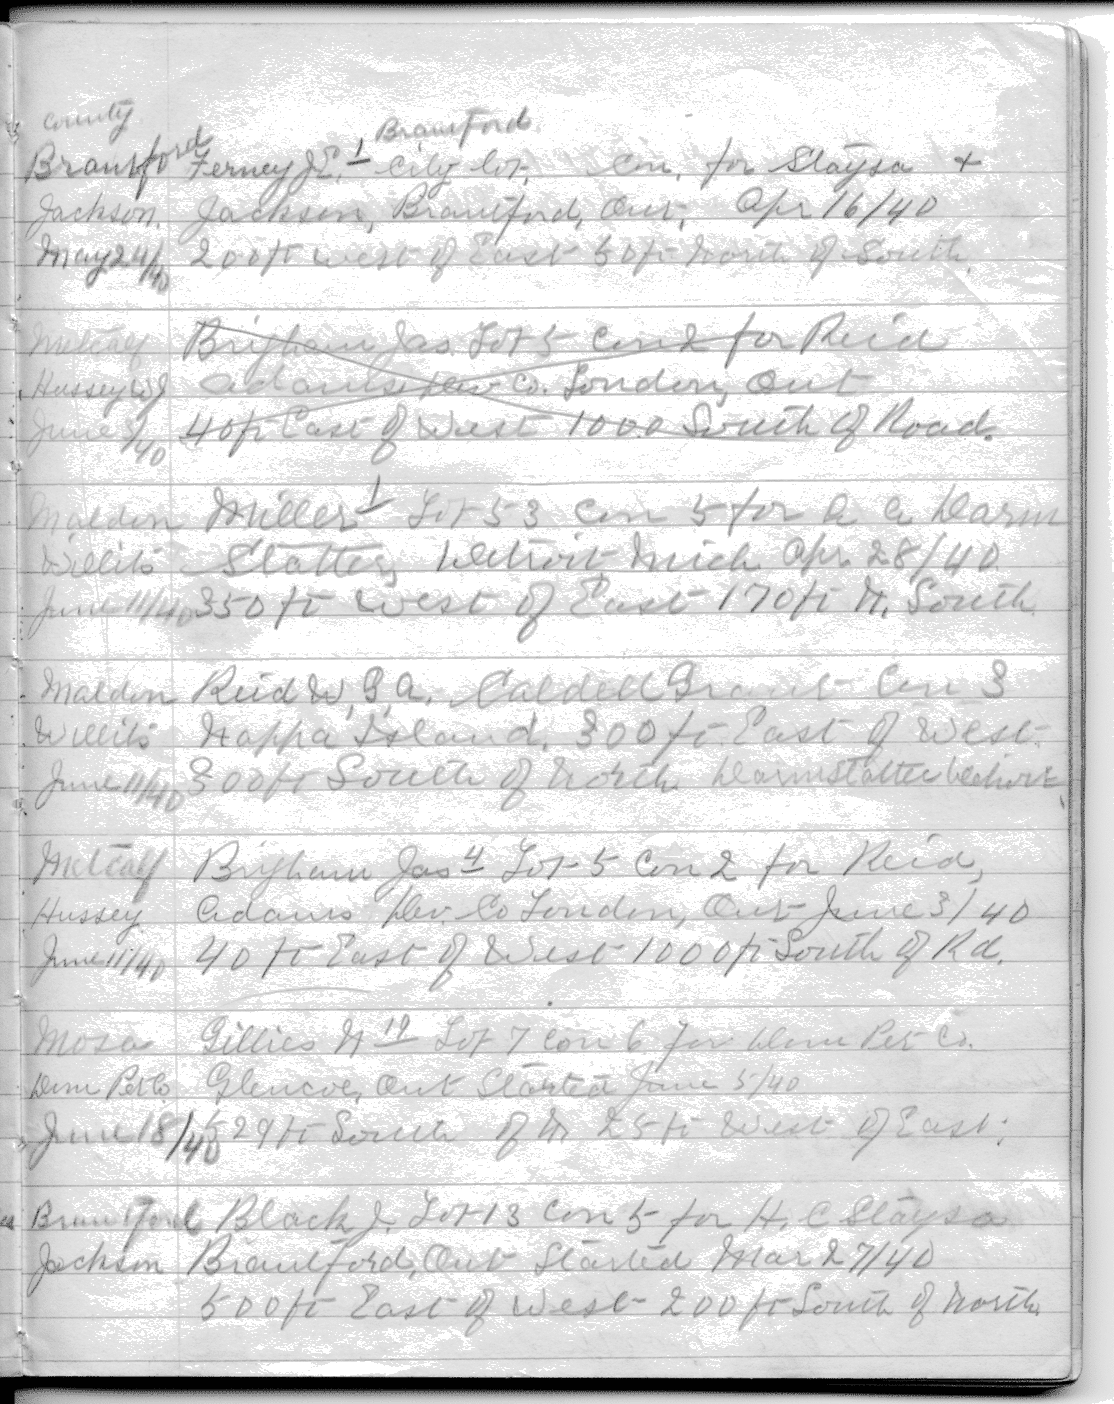 County
Brantford Ferney J.E. 1 Brantford City Lot, Con. for Slaysa +
Jackson. Jackson, Brantford, Ont. Apr 16/40
May 24/40 200ft West of East 50ft North of South.
Metcalf Brigham Jas. Lot 5 Con 2 for Reid
Hussey WJ Adams Dev Co. London, Ont
June 3/40 40ft East of West 1000 South of Road.
Maldon Miller 1 Lot 53 Con 5 for A A Darm
Willits Statter, Detroit Mich. Apr. 28/40
June 11/40 350ft West of East 170ft N. South.
Maldon Reid W.G.A. Caldell Grant Con 3
Willits Nappa Island. 300ft East of West.
June 11/40 300ft South of North Darmstatter Detroit
Metcalf Brigham Jas 4 Lot 5 Con 2 for Reid,
Hussey Adams Dev. Co London, Ont June 3/40
June 11/40 40 ft East of West 1000ft South of Rd.
Mosa Gillies N 19 Lot 7 Con 6 for Dom Pet Co.
Dom Pet Co. Glencoe, Ont Started June 5/40
June 18/40 529ft South of N. 25ft West of East.
Brantford Black J. Lot 13 Con 5 for H. C Slaysa
Jackson Brantford, Ont Started Mar 27/40
500ft East of West 200ft South of North.